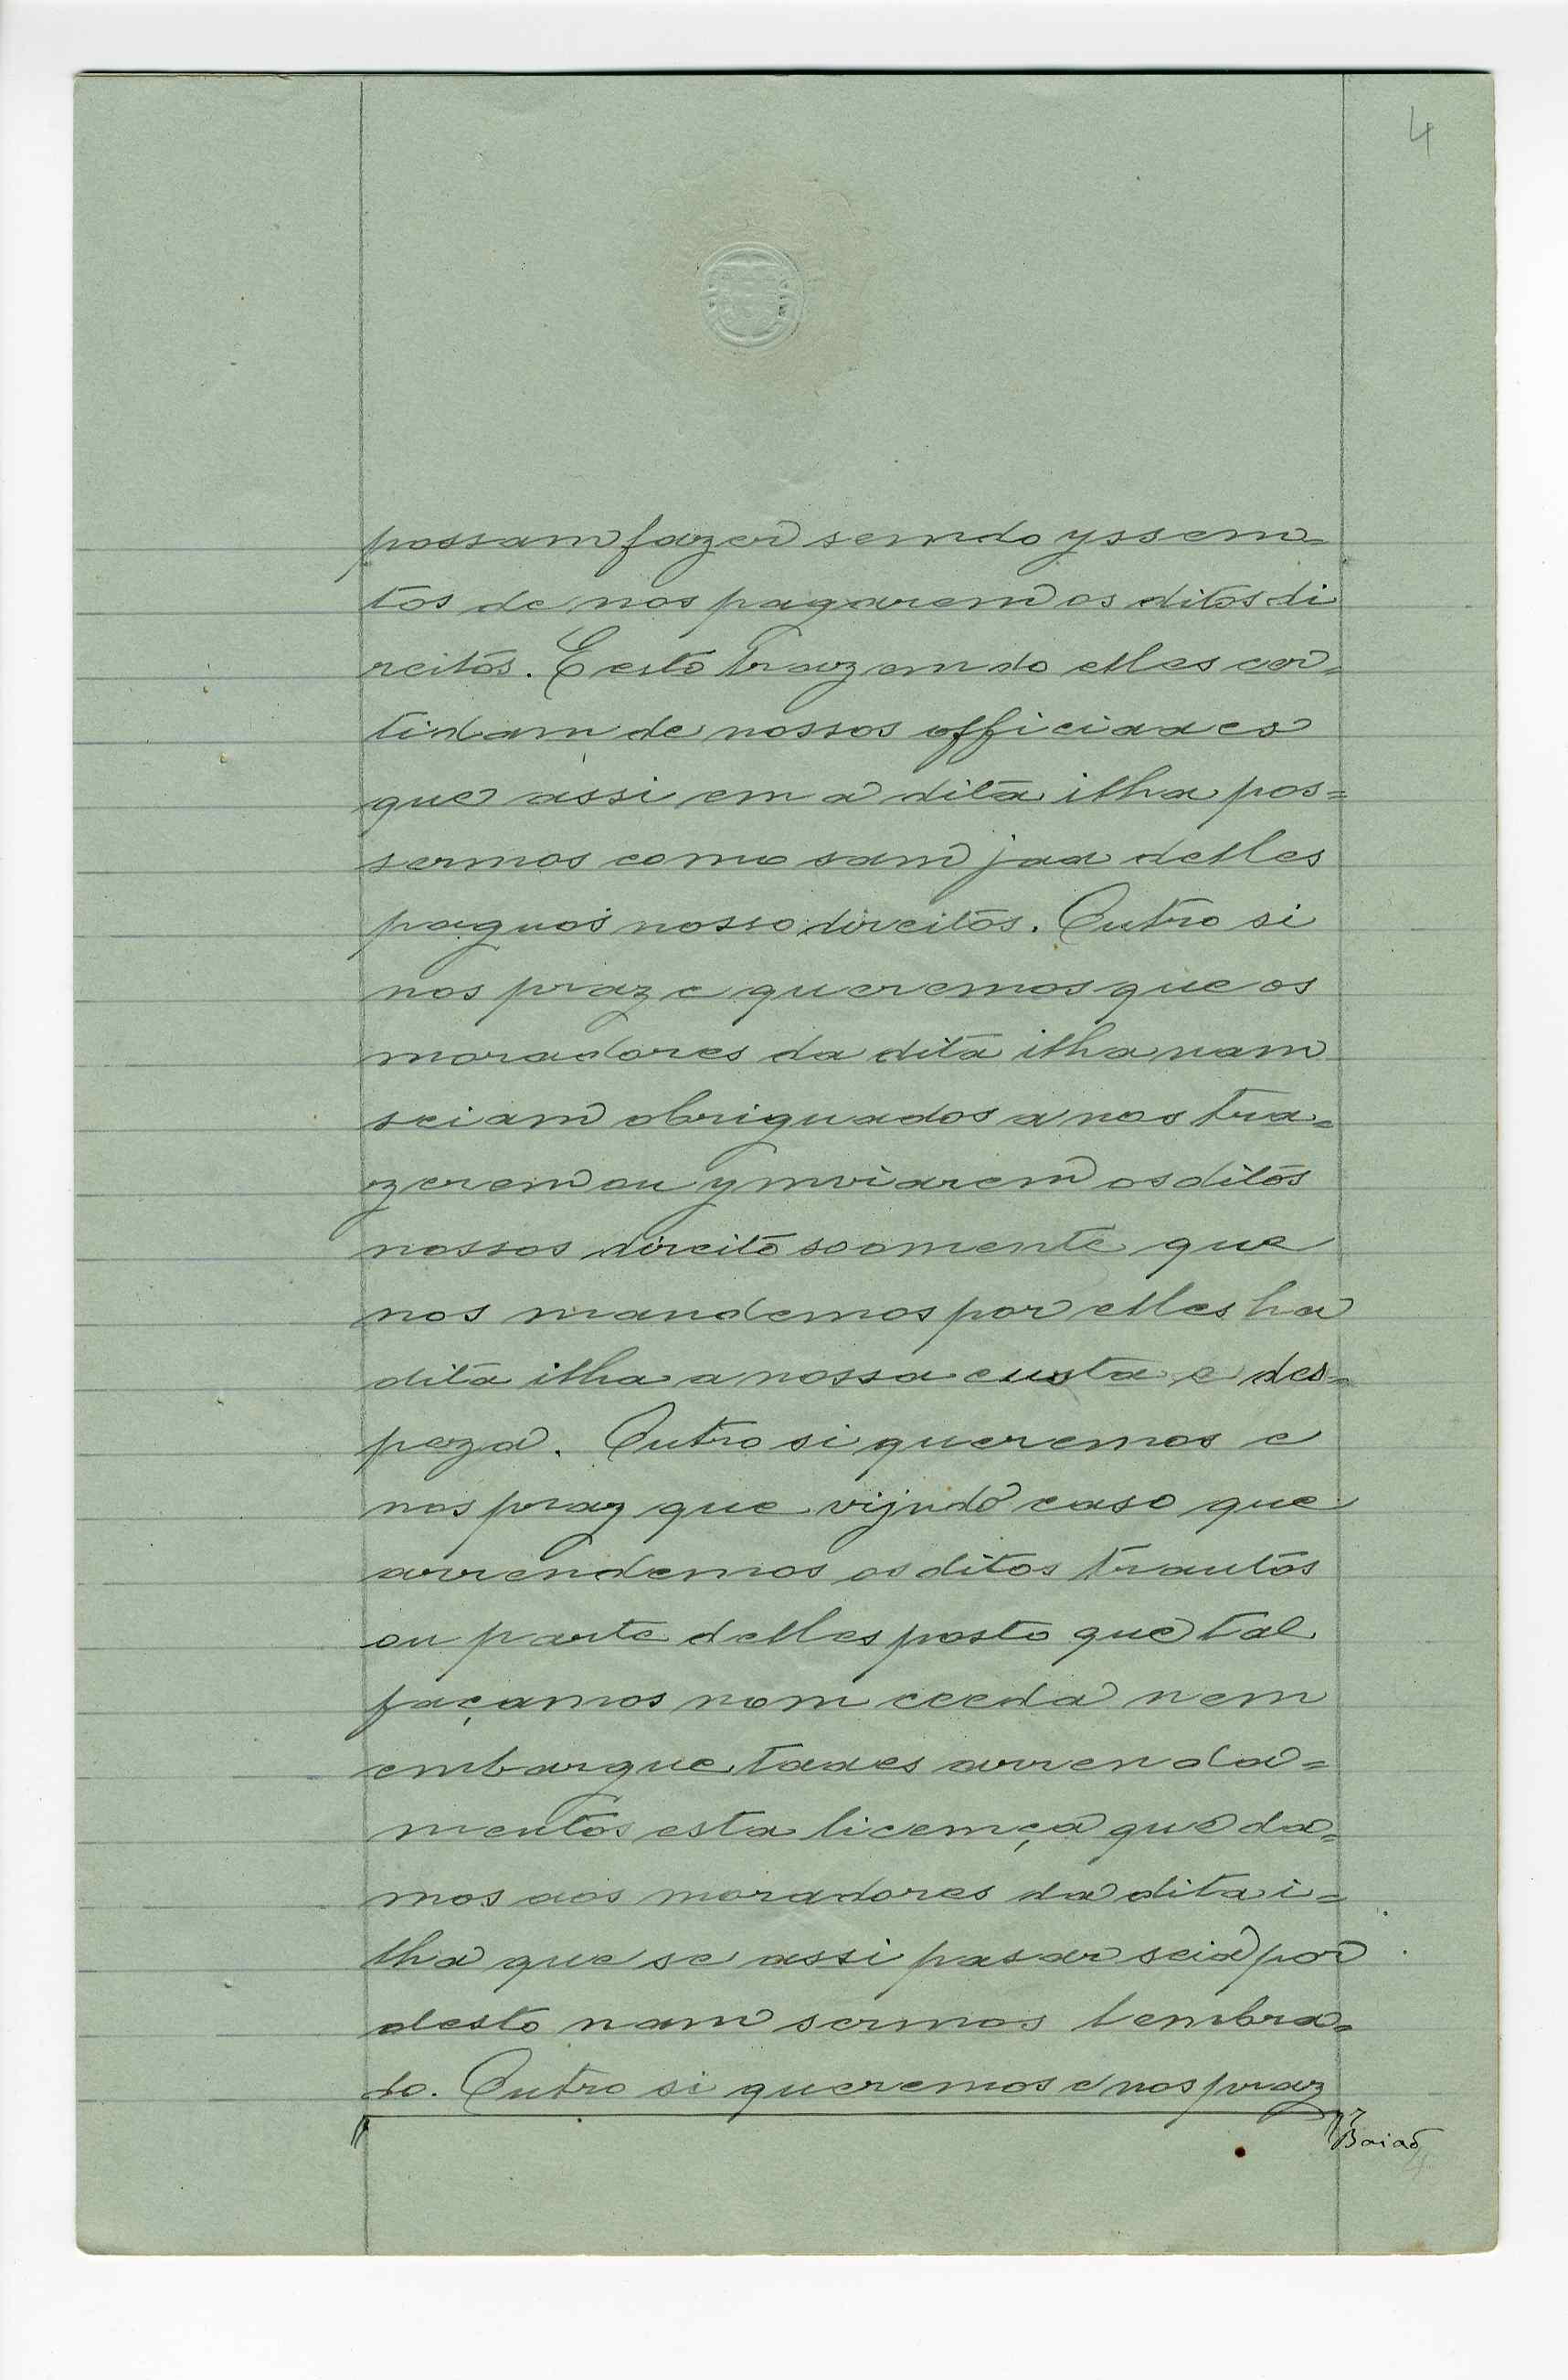 4
possam fazer semdo yssem=
tos de nos pagarem os ditos di
reitos. E esto trazemdo elles cer=
tidam de nossos officiaaes
que assi em a dita ilha pos=
sermos como sam jaa delles
paguos nosso direitos. Outro si
nos praz e queremos que os
moradores da dita ilha nam
seiam obriguados a nos tra=
zerem ou ymviarem os ditos
nossos direito soomente que
nos mandemos por elles ha
dita ilha a nossa custa e des=
peza. Outro si queremos e
nos praz que vijndo caso que
arrendemos os ditos trautos
ou parte delles posto que tal
façamos nom ceeda nem
embargue taaes arrenda=
mentos esta licemça que da=
mos aos moradores da dita i=
lha que se assi pasar seia por
desto nam sermos lembra=
do. Outro si queremos e nos praz
Baião